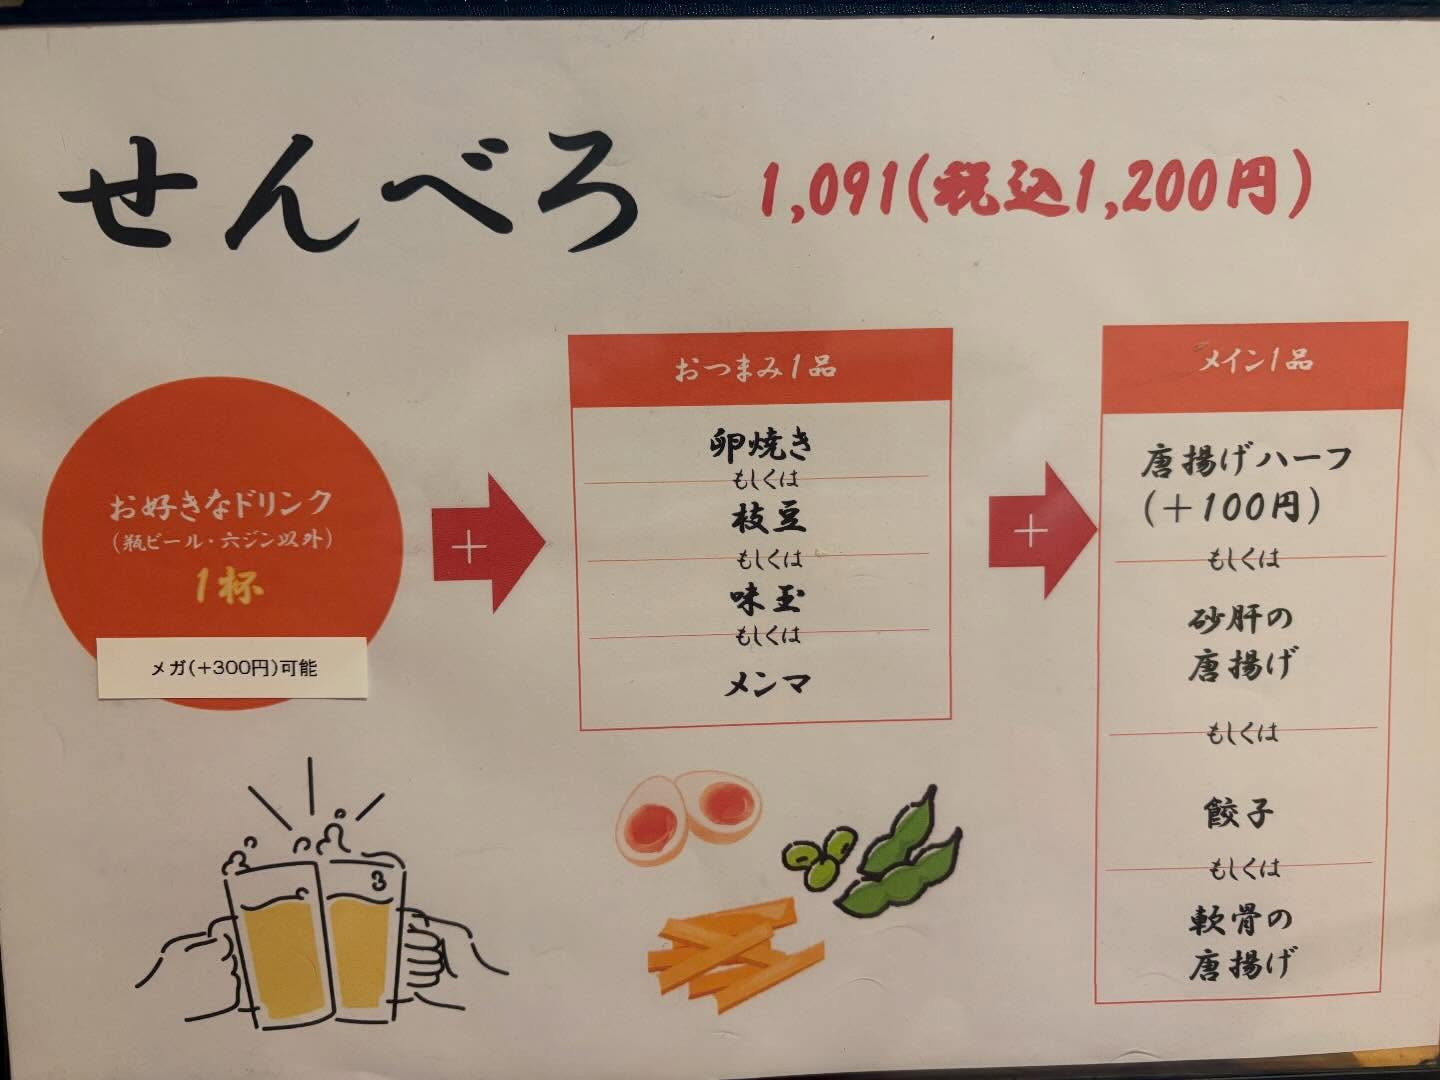 せんべろ
1,091(税込1,200円)
お好きなドリンク
(瓶ビール・六ジン以外)
1杯
メガ(+300円)可能
+
おつまみ1品
卵焼き
もしくは
枝豆
もしくは
味玉
もしくは
メンマ
+
メイン1品
唐揚げハーフ
(+100円)
もしくは
砂肝の
唐揚げ
もしくは
餃子
もしくは
軟骨の
唐揚げ